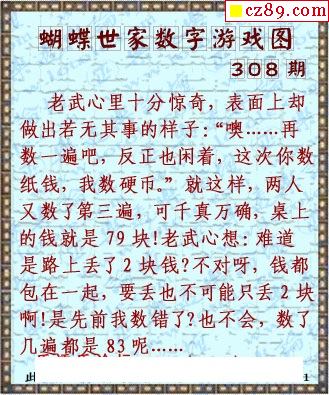 cz89.com
蝴蝶世家数字游戏图
308 期
老武心里十分惊奇，表面上却
做出若无其事的样子：“噢……再
数一遍吧，反正也闲着，这次你数
纸钱，我数硬币。”就这样，两人
又数了第三遍，可千真万确，桌上
的钱就是 79 块！老武心想：难道
是路上丢了 2 块钱？不对呀，钱都
包在一起，要丢也不可能只丢 2 块
啊！是先前我数错了？也不会，数了
几遍都是 83 呢……